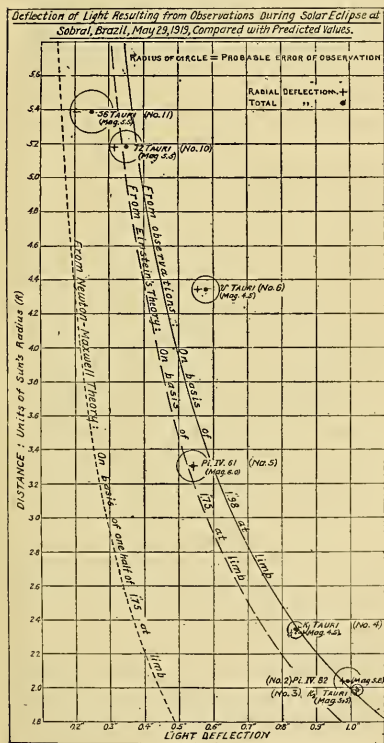 Deflection of Light Resulting from Observations During Solar Eclipse at
Sobral, Brazil, May 29, 1919, Compared with Predicted Values.
RADIUS OF CIRCLE = PROBABLE ERROR OF OBSERVATION
RADIAL DEFLECTION +
TOTAL " •
56 TAURI (No. 11)
(Mag. 5.5)
72 TAURI (No. 10)
(Mag. 5.5)
υ TAURI (No. 6)
(Mag. 4.5)
Pi. IV. 61 (No. 5)
(Mag. 6.0)
K₁ TAURI (No. 4)
(Mag. 4.5)
(No. 2) Pi. IV. 82 (Mag. 5.8)
(No. 3). K₂ TAURI
(Mag. 5.5)
From Newton-Maxwell Theory: On basis of one half of 1.75 at limb
From Einstein's Theory: On basis of 1.75 at limb
From observations: On basis of 1.98 at limb
DISTANCE : Units of Sun's Radius (R)
5.6
5.4
5.2
5.0
4.8
4.6
4.4
4.2
4.0
3.8
3.6
3.4
3.2
3.0
2.8
2.6
2.4
2.2
2.0
1.8
0.1" 0.2" 0.3" 0.4" 0.5" 0.6" 0.7" 0.8" 0.9" 1.0"
LIGHT DEFLECTION